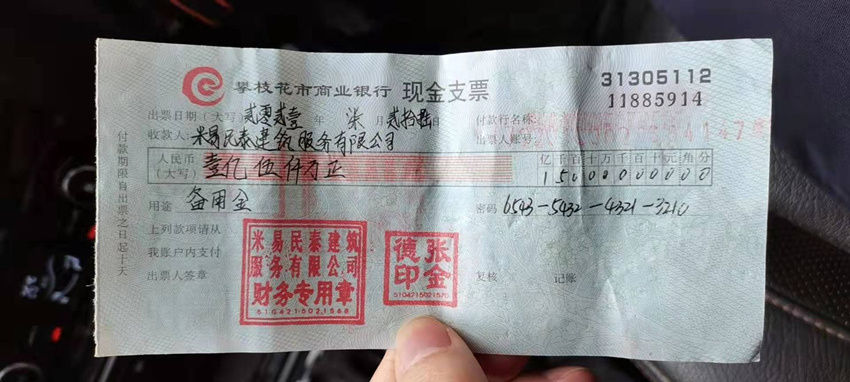 攀枝花市商业银行 现金支票
31305112
11885914
出票日期(大写) 贰零贰壹 年 柒 月 贰拾 日
付款行名称:
收款人: 米易民泰建筑服务有限公司
出票人账号:
人民币
(大写) 壹亿伍仟万正
亿千百十万千百十元角分
15000000000
用途 备用金
密码 6543-5432-4321-3210
上列款项请从
我账户内支付
出票人签章
复核 记账
付款期限自出票之日起十天
米易民泰建筑
服务有限公司
财务专用章
5104215021568
张金德印
5104215021570